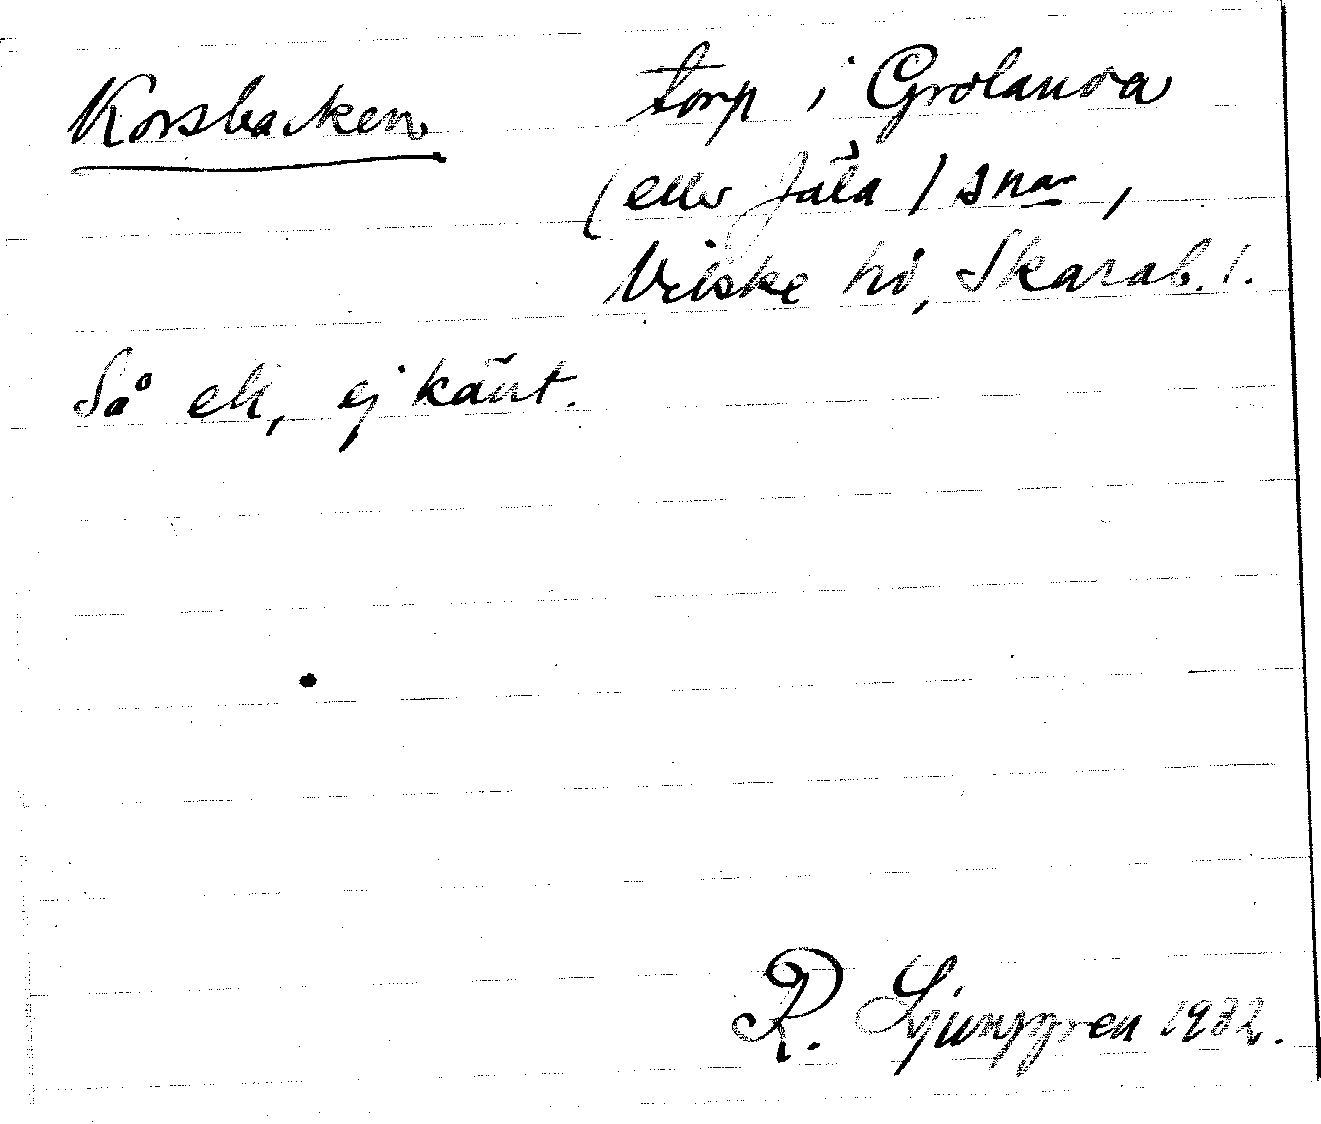 Korsbacken torp i Grolanda
(eller Jäla) snar,
Vilske hd, Skarab. l.
Så ek, ej känt.
R. Ljunggren 1932.